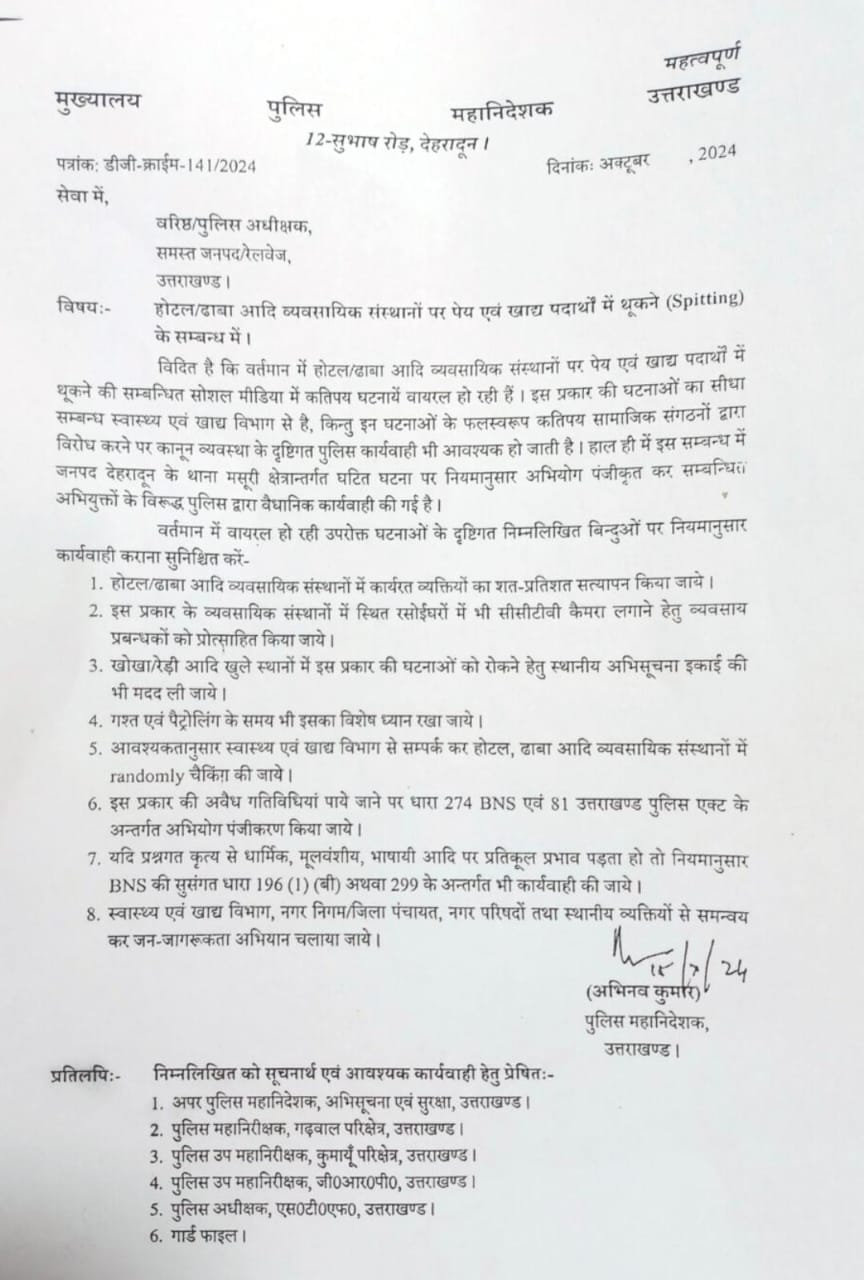 महत्वपूर्ण
मुख्यालय पुलिस महानिदेशक उत्तराखण्ड
12-सुभाष रोड़, देहरादून ।
पत्रांक: डीजी-क्राईम-141/2024 दिनांकः अक्टूबर , 2024
सेवा में,
वरिष्ठ/पुलिस अधीक्षक,
समस्त जनपद/रेलवेज,
उत्तराखण्ड ।
विषयः- होटल/ढाबा आदि व्यवसायिक संस्थानों पर पेय एवं खाद्य पदार्थों में थूकने (Spitting)
के सम्बन्ध में ।
विदित है कि वर्तमान में होटल/ढाबा आदि व्यवसायिक संस्थानों पर पेय एवं खाद्य पदार्थों में
थूकने की सम्बन्धित सोशल मीडिया में कतिपय घटनायें वायरल हो रही हैं । इस प्रकार की घटनाओं का सीधा
सम्बन्ध स्वास्थ्य एवं खाद्य विभाग से है, किन्तु इन घटनाओं के फलस्वरूप कतिपय सामाजिक संगठनों द्वारा
विरोध करने पर कानून व्यवस्था के दृष्टिगत पुलिस कार्यवाही भी आवश्यक हो जाती है । हाल ही में इस सम्बन्ध में
जनपद देहरादून के थाना मसूरी क्षेत्रान्तर्गत घटित घटना पर नियमानुसार अभियोग पंजीकृत कर सम्बन्धित
अभियुक्तों के विरूद्ध पुलिस द्वारा वैधानिक कार्यवाही की गई है ।
वर्तमान में वायरल हो रही उपरोक्त घटनाओं के दृष्टिगत निम्नलिखित बिन्दुओं पर नियमानुसार
कार्यवाही कराना सुनिश्चित करें-
1. होटल/ढाबा आदि व्यवसायिक संस्थानों में कार्यरत व्यक्तियों का शत-प्रतिशत सत्यापन किया जाये ।
2. इस प्रकार के व्यवसायिक संस्थानों में स्थित रसोईघरों में भी सीसीटीवी कैमरा लगाने हेतु व्यवसाय
प्रबन्धकों को प्रोत्साहित किया जाये ।
3. खोखा/रेड़ी आदि खुले स्थानों में इस प्रकार की घटनाओं को रोकने हेतु स्थानीय अभिसूचना इकाई की
भी मदद ली जाये ।
4. गश्त एवं पैट्रोलिंग के समय भी इसका विशेष ध्यान रखा जाये ।
5. आवश्यकतानुसार स्वास्थ्य एवं खाद्य विभाग से सम्पर्क कर होटल, ढाबा आदि व्यवसायिक संस्थानों में
randomly चैकिंग की जाये ।
6. इस प्रकार की अवैध गतिविधियां पाये जाने पर धारा 274 BNS एवं 81 उत्तराखण्ड पुलिस एक्ट के
अन्तर्गत अभियोग पंजीकरण किया जाये ।
7. यदि प्रश्नगत कृत्य से धार्मिक, मूलवंशीय, भाषायी आदि पर प्रतिकूल प्रभाव पड़ता हो तो नियमानुसार
BNS की सुसंगत धारा 196 (1) (बी) अथवा 299 के अन्तर्गत भी कार्यवाही की जाये ।
8. स्वास्थ्य एवं खाद्य विभाग, नगर निगम/जिला पंचायत, नगर परिषदों तथा स्थानीय व्यक्तियों से समन्वय
कर जन-जागरूकता अभियान चलाया जाये ।
(अभिनव कुमार)
पुलिस महानिदेशक,
उत्तराखण्ड ।
प्रतिलिपिः- निम्नलिखित को सूचनार्थ एवं आवश्यक कार्यवाही हेतु प्रेषितः-
1. अपर पुलिस महानिदेशक, अभिसूचना एवं सुरक्षा, उत्तराखण्ड ।
2. पुलिस महानिरीक्षक, गढ़वाल परिक्षेत्र, उत्तराखण्ड ।
3. पुलिस उप महानिरीक्षक, कुमायूँ परिक्षेत्र, उत्तराखण्ड ।
4. पुलिस उप महानिरीक्षक, जी0आर0पी0, उत्तराखण्ड ।
5. पुलिस अधीक्षक, एस0टी0एफ0, उत्तराखण्ड ।
6. गार्ड फाइल ।